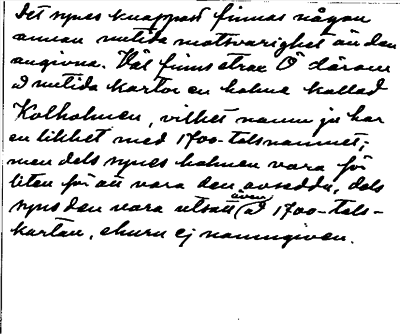 Det synes knappast finnas någon
annan nutida motsvarighet än den
angivna. Väl finns strax Ö därom
å nutida kartor en holme kallad
Kolholmen, vilket namn ju har
en likhet med 1700-talsnamnet;
men dels synes holmen vara för
liten för att vara den avsedda, dels
syns den vara utsatt även å 1700-tals-
kartan, ehuru ej namngiven.